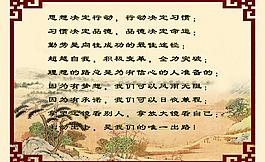 思想决定行动，行动决定习惯；
习惯决定品德，品德决定命运；
勤劳是向往成功的最佳途径；
超越自我，积极变革，全力突破；
理想的路总是为有信心的人准备的；
因为有梦想，我们可以风雨无阻
因为有承诺，我们可以日夜兼程；
拿望远镜看别人，拿放大镜看自己；
行动出去，是我们的唯一出路！